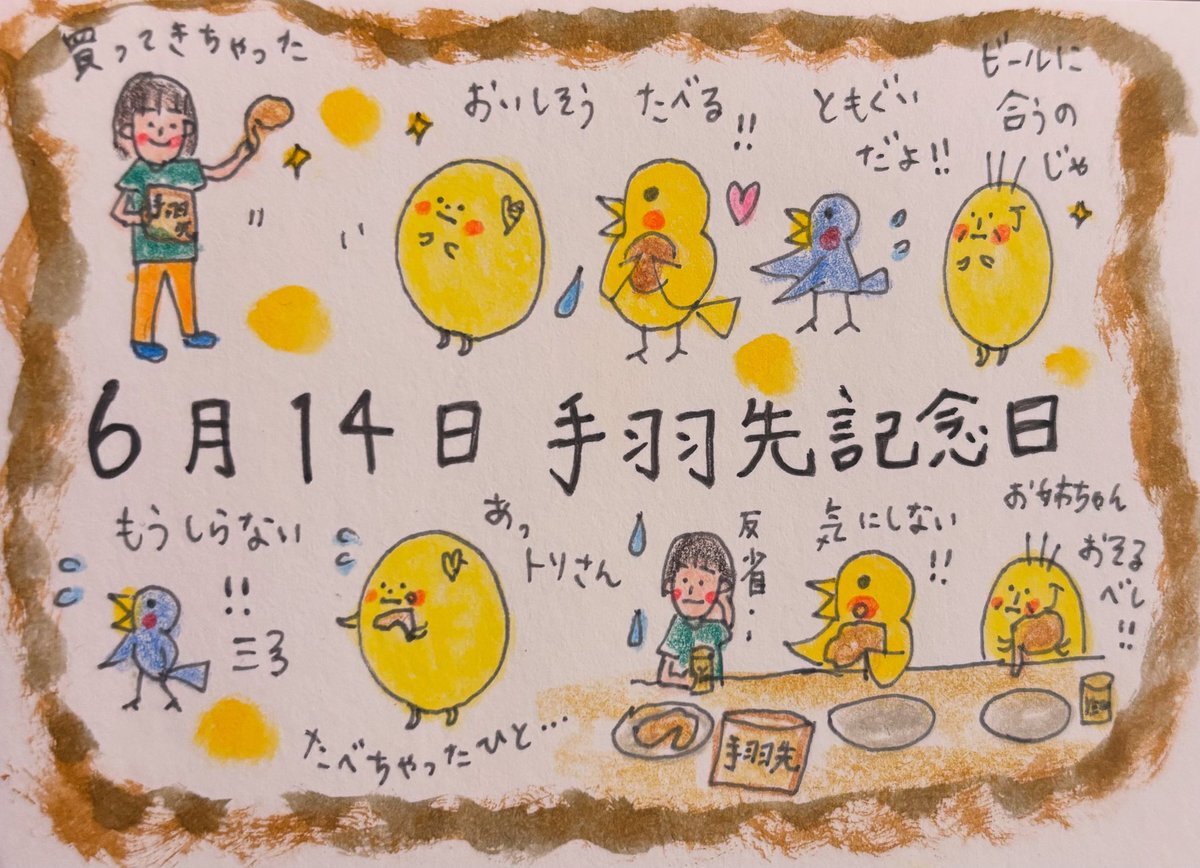 買ってきちゃった
手羽先
おいしそう
たべる!!
ともぐい
だよ!!
ビールに
合うの
じゃ
6月14日 手羽先記念日
もうしらない
!!
あっ
トリさん
たべちゃったひと…
反省..
気にしない
!!
お姉ちゃん
おそる
べし
!!
手羽先